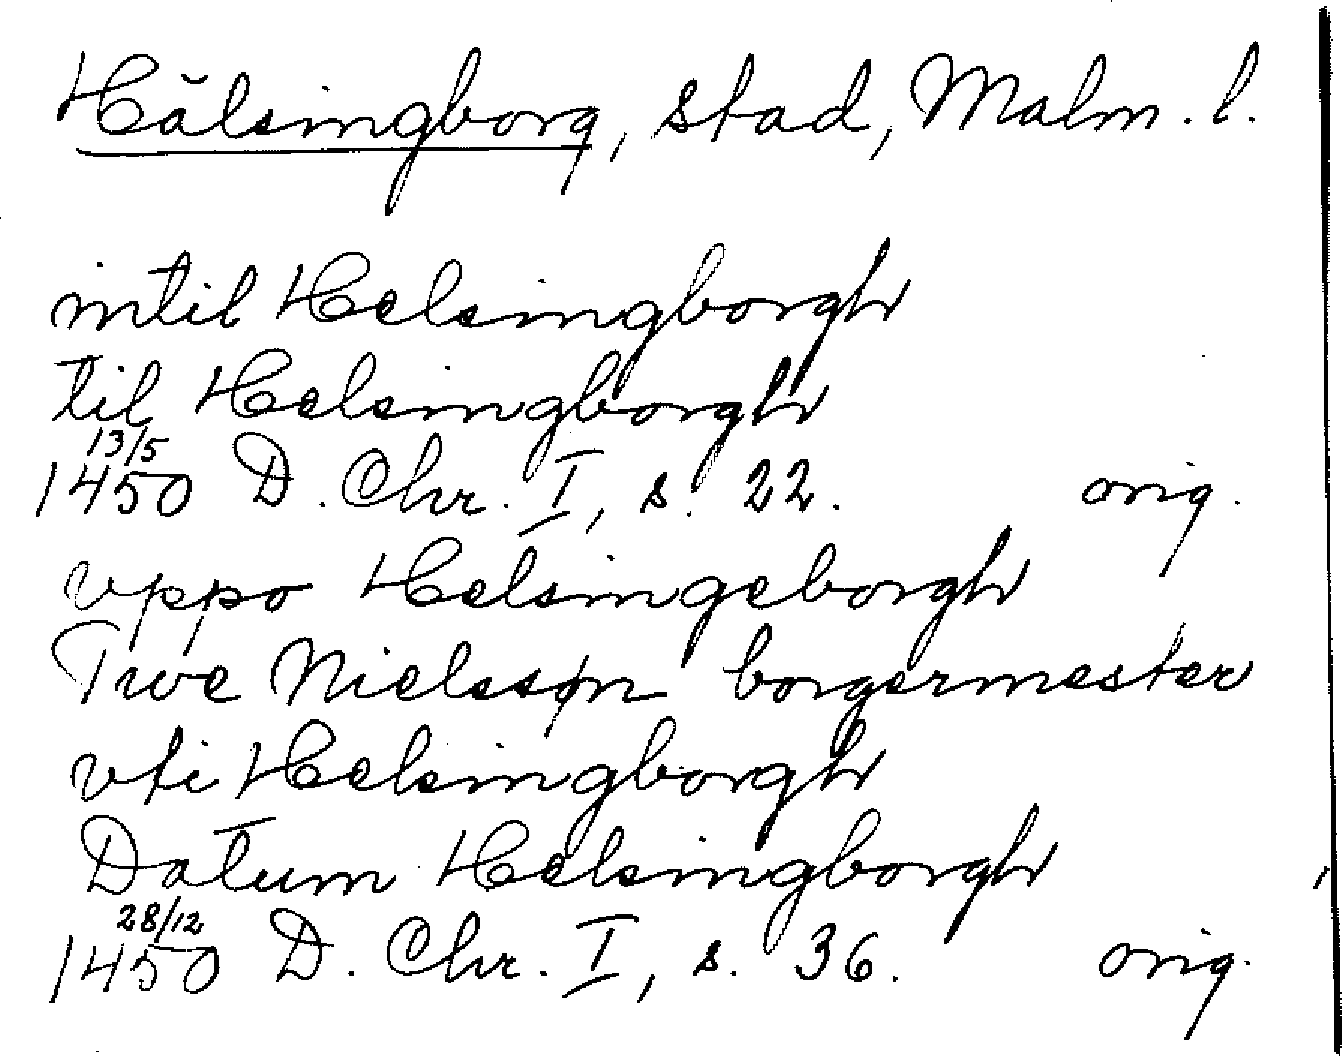 Hälsingborg, stad, Malm. l.
intil Helsingborgh
til Helsingborgh
13/5
1450 D. Chr. I, s. 22. orig.
vppo Helsingeborgh
Twe Nielssøn borgermester
vti Helsingborgh
Datum Helsingborgh
28/12
1450 D. Chr. I, s. 36. orig.